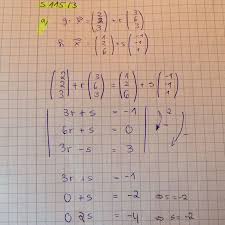 S 115/3
a) g: x⃗ = (2 2 3) + r (3 6 3)
h: x⃗ = (1 2 6) + s (-1 -1 1)
(2 2 3) + r (3 6 3) = (1 2 6) + s (-1 -1 1)
3r + s = -1
6r + s = 0
3r - s = 3
3r + s = -1
0 + s = -2
0 2s = -4 ⇒ s = -2